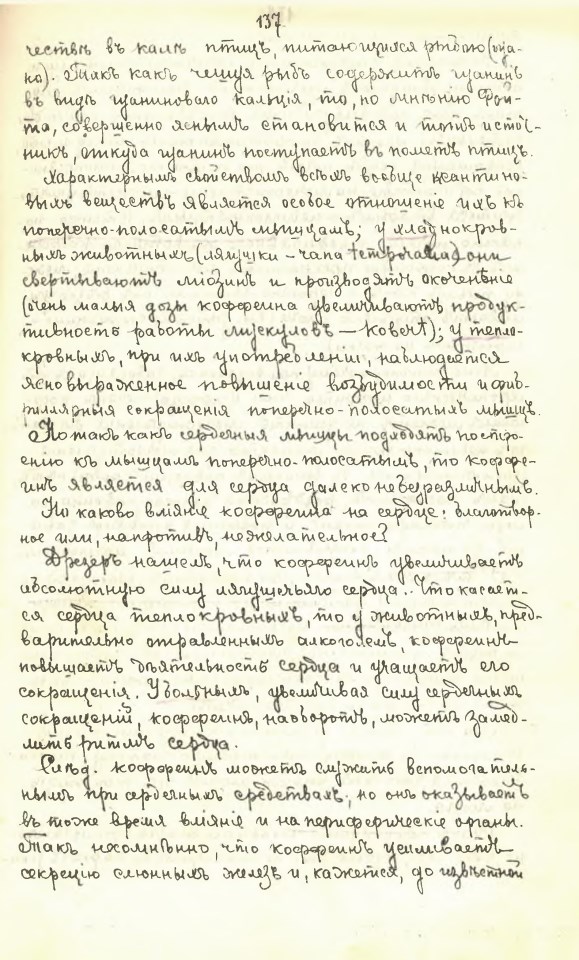 137
чествѣ въ калѣ птицъ, питающихся рыбою (гуа-
но). Такъ какъ чешуя рыбъ содержитъ гуанинъ
въ видѣ гуаниноваго кальція, то, по мнѣнію Фой-
та, совершенно яснымъ становится и тотъ источ-
никъ, откуда гуанинъ поступаетъ въ пометъ птицъ.
Характернымъ свойствомъ всѣхъ вообще ксантино-
выхъ веществъ является особое отношеніе ихъ къ
поперечно-полосатымъ мышцамъ; у хладнокров-
ныхъ животныхъ (лягушки – rana temporaria) они
свертываютъ міозинъ и производятъ окоченѣніе
(очень малыя дозы коффеина увеличиваютъ продук-
тивность работы мускуловъ — Кобертъ); у тепло-
кровныхъ, при ихъ употребленіи, наблюдается
ясно выраженное повышеніе возбудимости и фиб-
риллярныя сокращенія поперечно-полосатыхъ мышцъ.
Но такъ какъ сердечныя мышцы подходятъ по стро-
енію къ мышцамъ поперечно-полосатымъ, то коффе-
инъ является для сердца далеко небезразличнымъ.
Но каково вліяніе коффеина на сердце: благотвор-
ное или, напротивъ, нежелательное?
Дрезеръ нашелъ, что коффеинъ увеличиваетъ
абсолютную силу лягушечьяго сердца. Что касает-
ся сердца теплокровныхъ, то у животныхъ, пред-
варительно отравленныхъ алкоголемъ, коффеинъ
повышаетъ дѣятельность сердца и учащаетъ его
сокращенія. У больныхъ, увеличивая силу сердечныхъ
сокращеній, коффеинъ, наоборотъ, можетъ замед-
лить ритмъ сердца.
Слѣд. коффеинъ можетъ служить вспомогатель-
нымъ при сердечныхъ средствахъ, но онъ оказываетъ
въ тоже время вліяніе и на периферическіе органы.
Такъ несомнѣнно, что коффеинъ усиливаетъ
секрецію слюнныхъ железъ и, кажется, до извѣстной